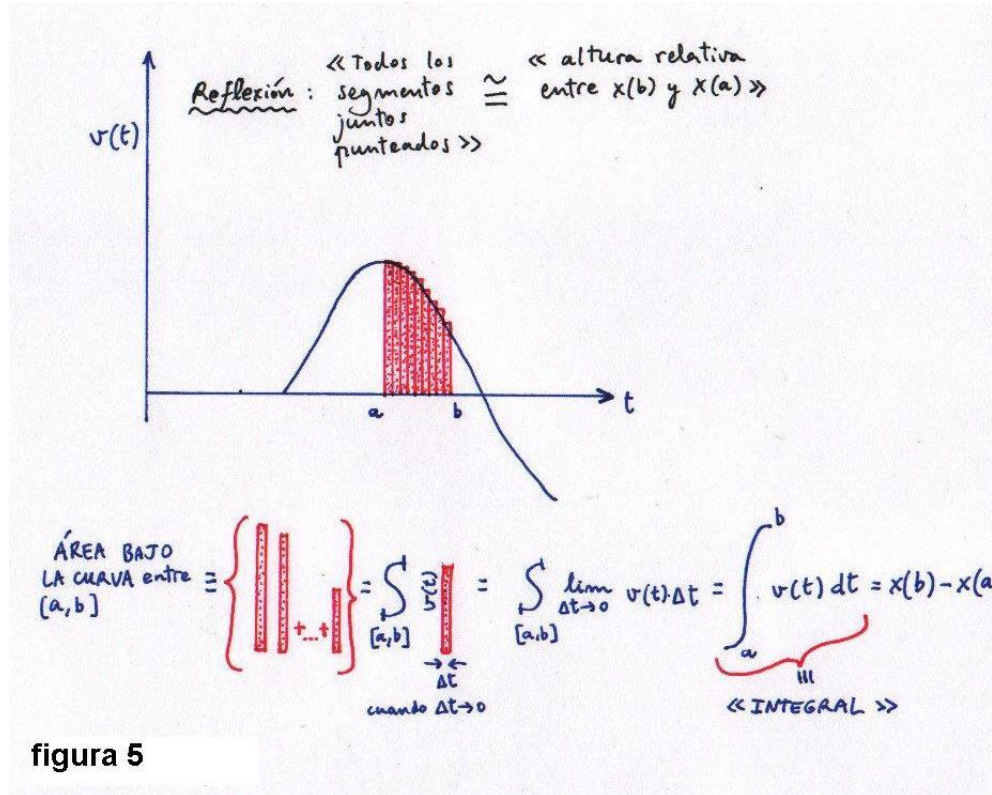 Reflexión : «Todos los segmentos juntos punteados» ≅ «altura relativa entre x(b) y x(a)»
v(t)
a
b
t
ÁREA BAJO
LA CURVA entre
[a,b]
≡ { +...+ } = S [a,b] v(t) Δt cuando Δt→0 = S [a,b] lim Δt→0 v(t)·Δt = ∫ a b v(t) dt = x(b)-x(a
«INTEGRAL»
figura 5